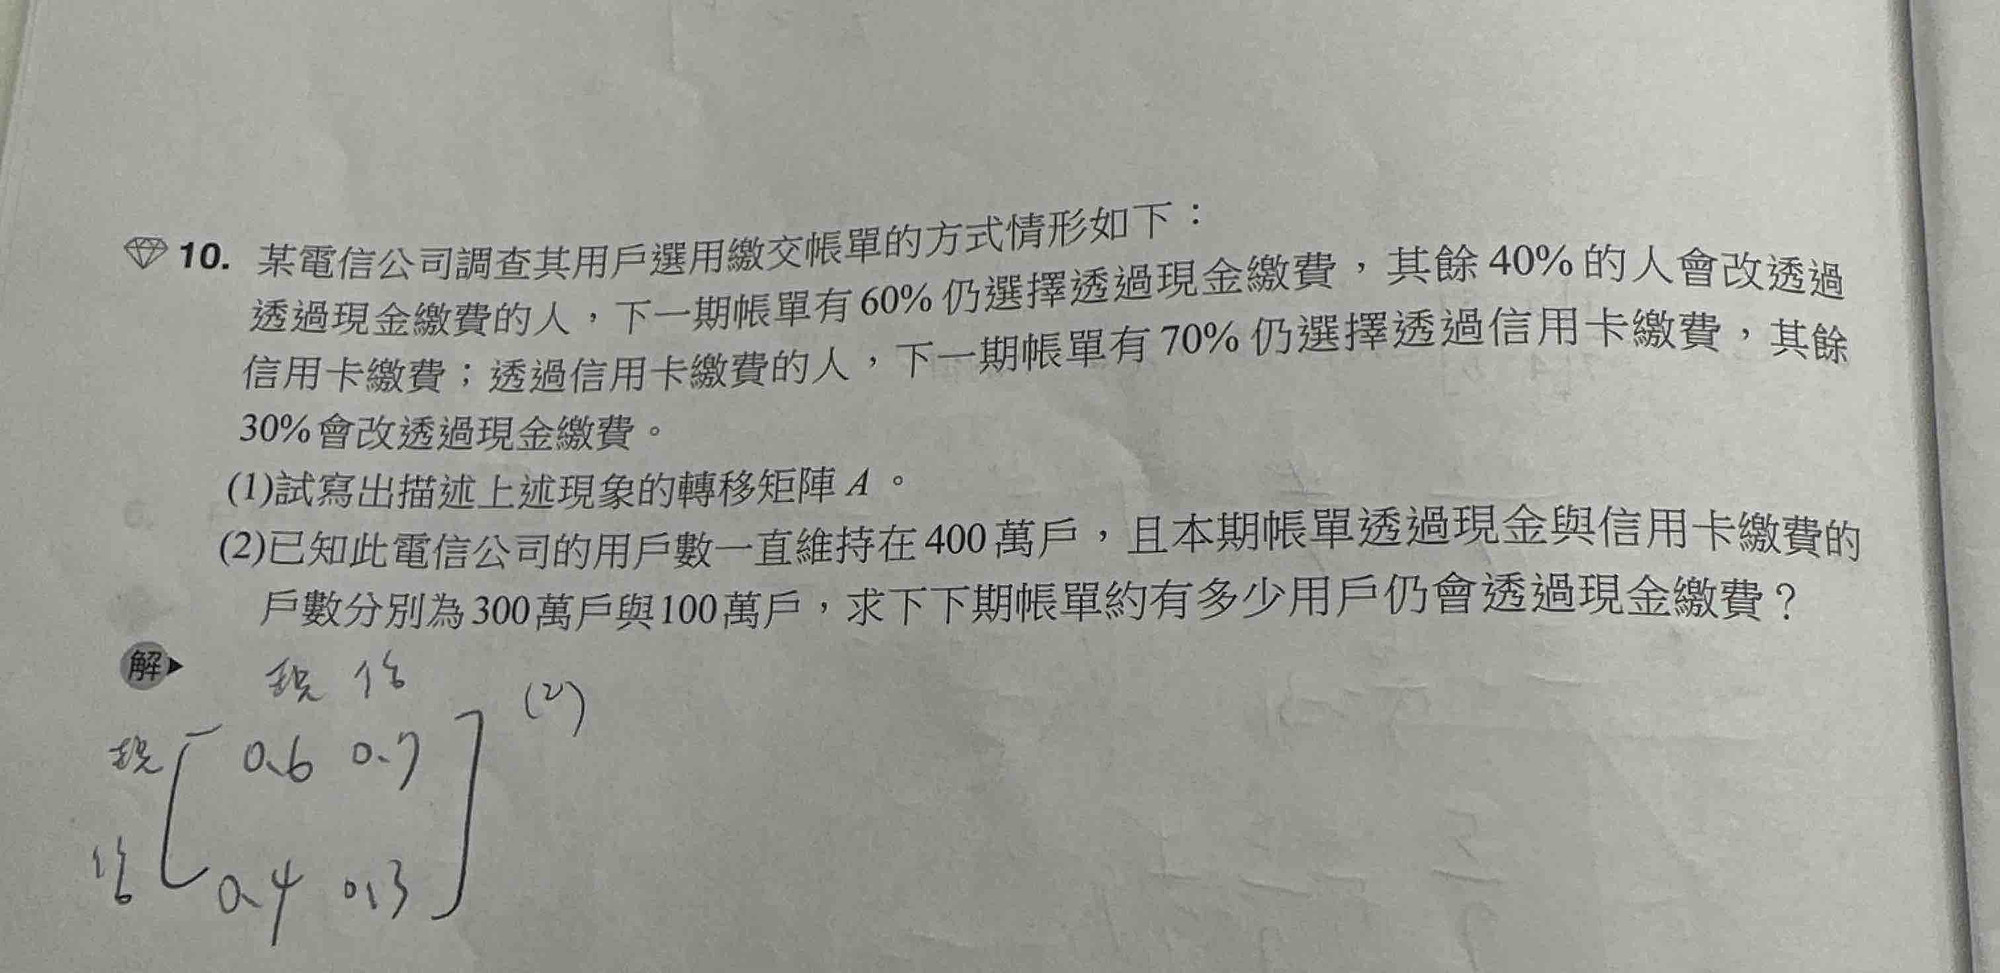 10. 某電信公司調查其用戶選用繳交帳單的方式情形如下：
透過現金繳費的人，下一期帳單有60%仍選擇透過現金繳費，其餘40%的人會改透過
信用卡繳費；透過信用卡繳費的人，下一期帳單有70%仍選擇透過信用卡繳費，其餘
30%會改透過現金繳費。
(1)試寫出描述上述現象的轉移矩陣A。
(2)已知此電信公司的用戶數一直維持在400萬戶，且本期帳單透過現金與信用卡繳費的
戶數分別為300萬戶與100萬戶，求下下期帳單約有多少用戶仍會透過現金繳費？
解
現 信 (2)
現 0.6 0.7
信 0.4 0.3